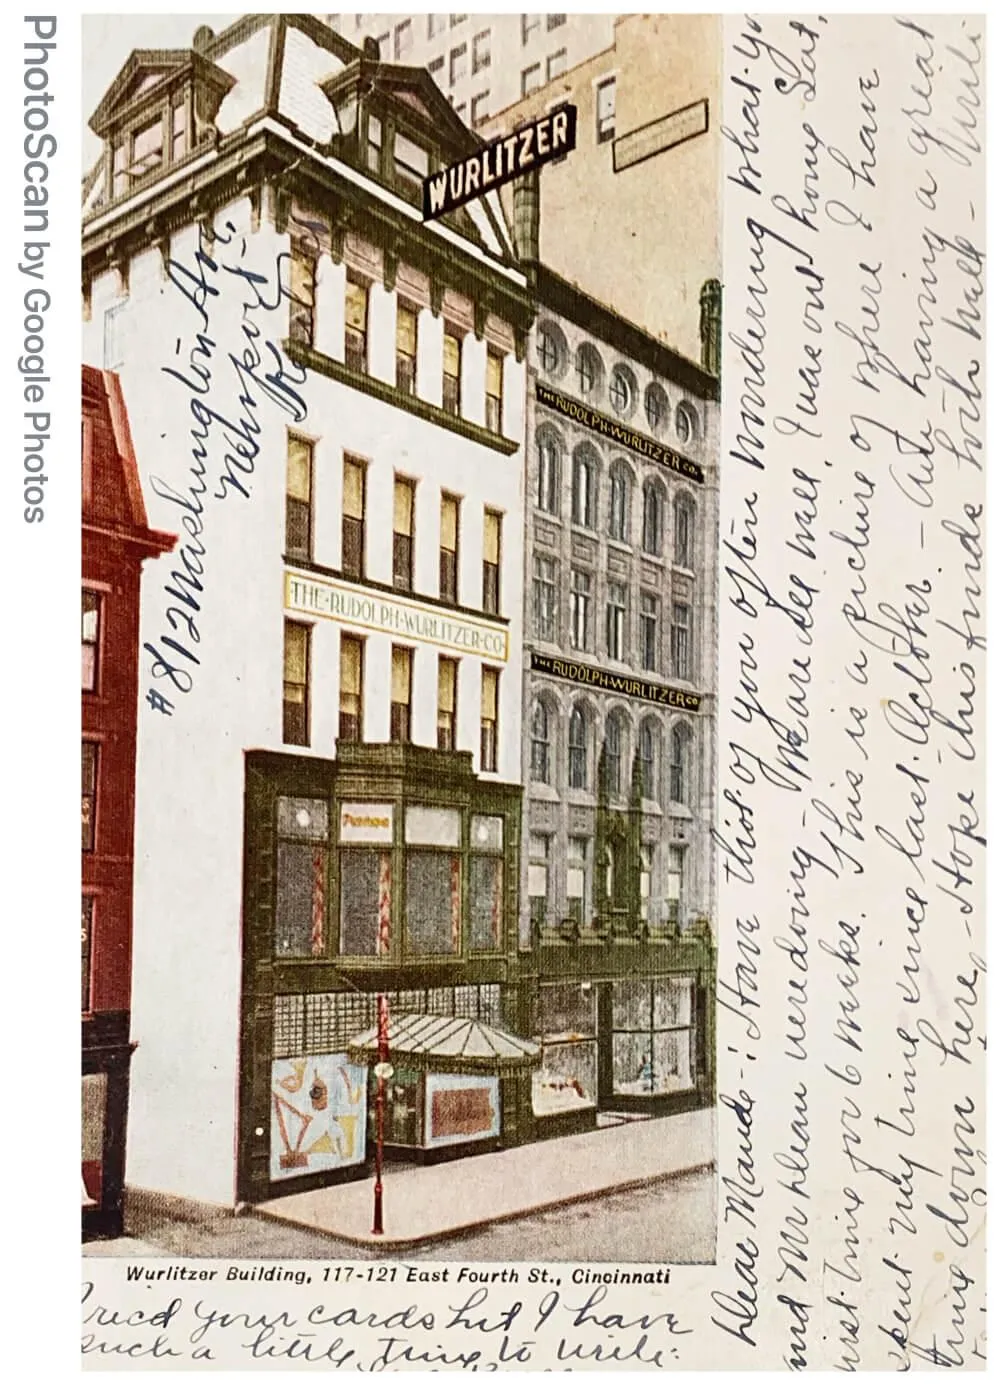 PhotoScan by Google Photos
WURLITZER
#812 Washington Ave,
Newport
THE RUDOLPH WURLITZER CO.
THE RUDOLPH WURLITZER CO
THE·RUDOLPH·WURLITZER·CO·
Wurlitzer Building, 117-121 East Fourth St., Cincinnati
Dear Maude-: Have thot of you often wondering what
and Mr were doing- We are all well. I was out home Sat,
time for 6 weeks. This is a picture of where I have
my time since last October. - Am having a great
time down here - Hope this finds both well -
recd your cards but I have
such a little time to write: